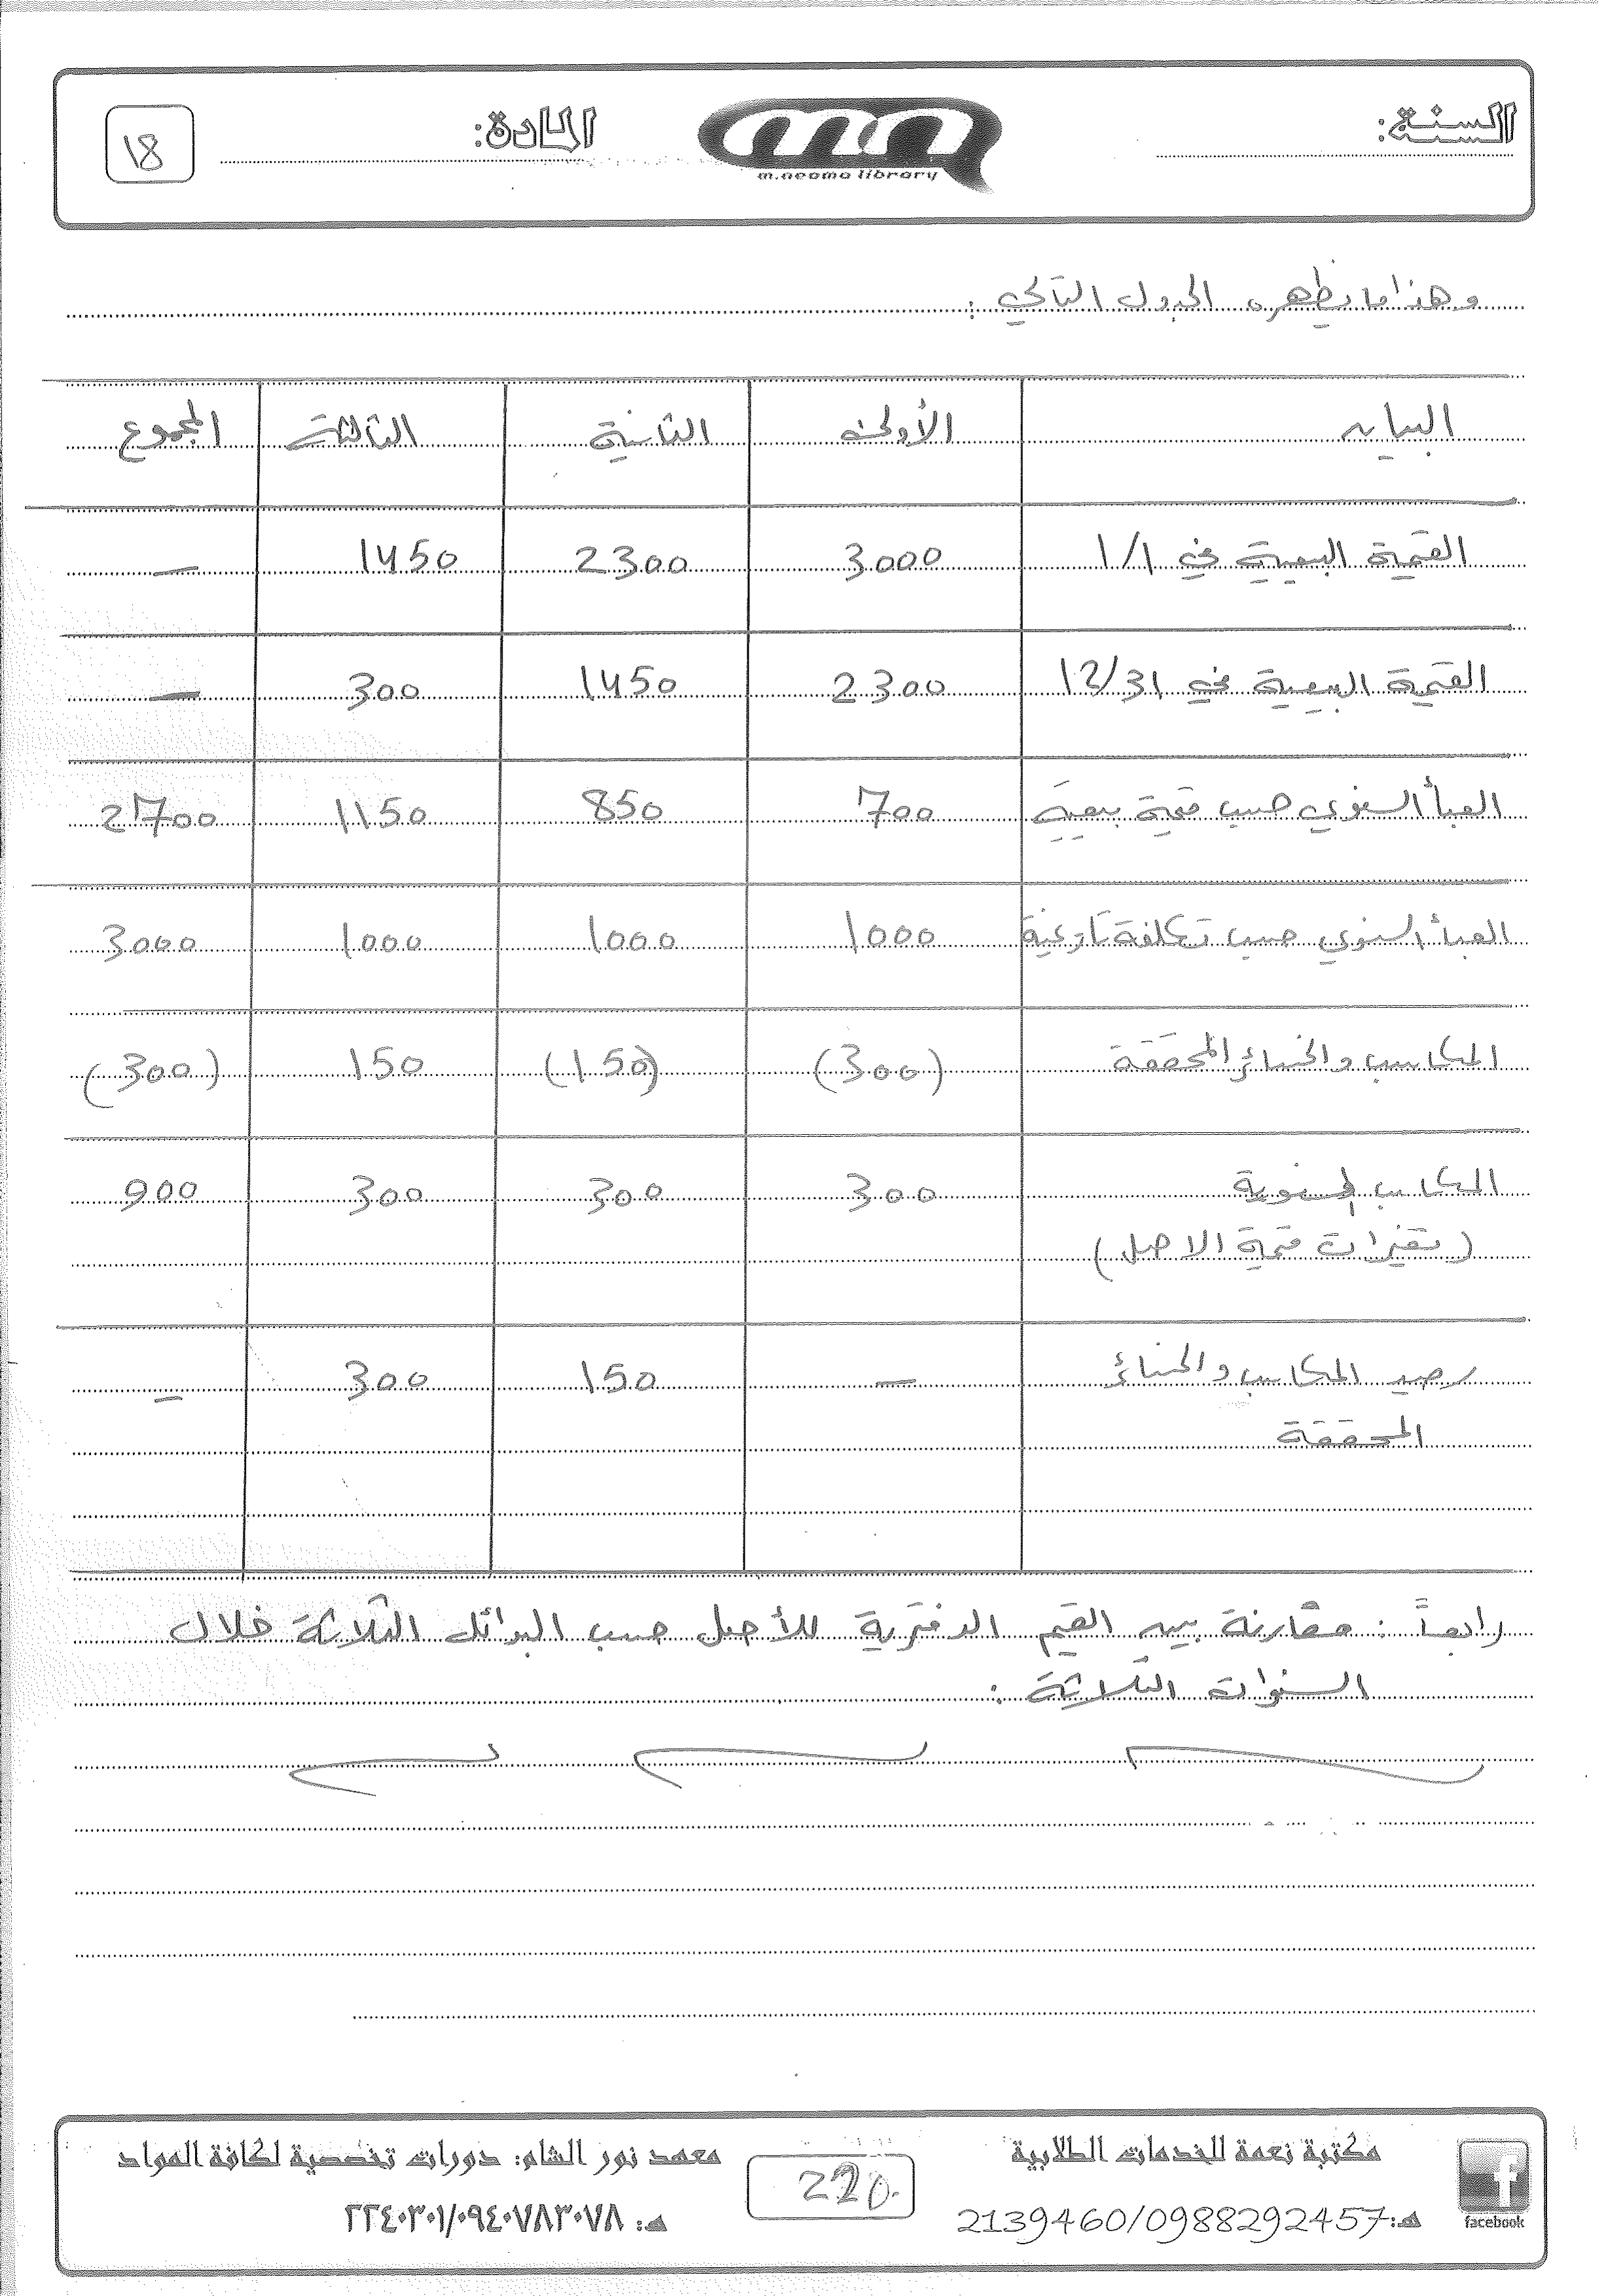 السنة:
m.neama library
المادة:
18
وهذا ما يظهره الجدول التالي :
البيان الأولى الثانية الثالثة المجموع
القيمة البيعية في 1/1 3000 2300 1450 —
القيمة البيعية في 12/31 2300 1450 300 —
العبأ السنوي حسب قيمة بيعية 700 850 1150 2700
العبأ السنوي حسب تكلفة تاريخية 1000 1000 1000 3000
المكاسب والخسائر المحققة (300) (150) 150 (300)
المكاسب السنوية 300 300 300 900
(تغيرات قيمة الاصل)
رصيد المكاسب والخسائر — 150 300 —
المحققة
رابعاً : مقارنة بين القيم الدفترية للأصل حسب البدائل الثلاثة خلال
السنوات الثلاثة :
مكتبة نعمة للخدمات الطلابية
هـ: 2139460/0988292457
facebook
معهد نور الشام: دورات تخصصية لكافة المواد
هـ: ٢٢٤٠٣٠١/٠٩٤٠٧٨٣٠٧٨